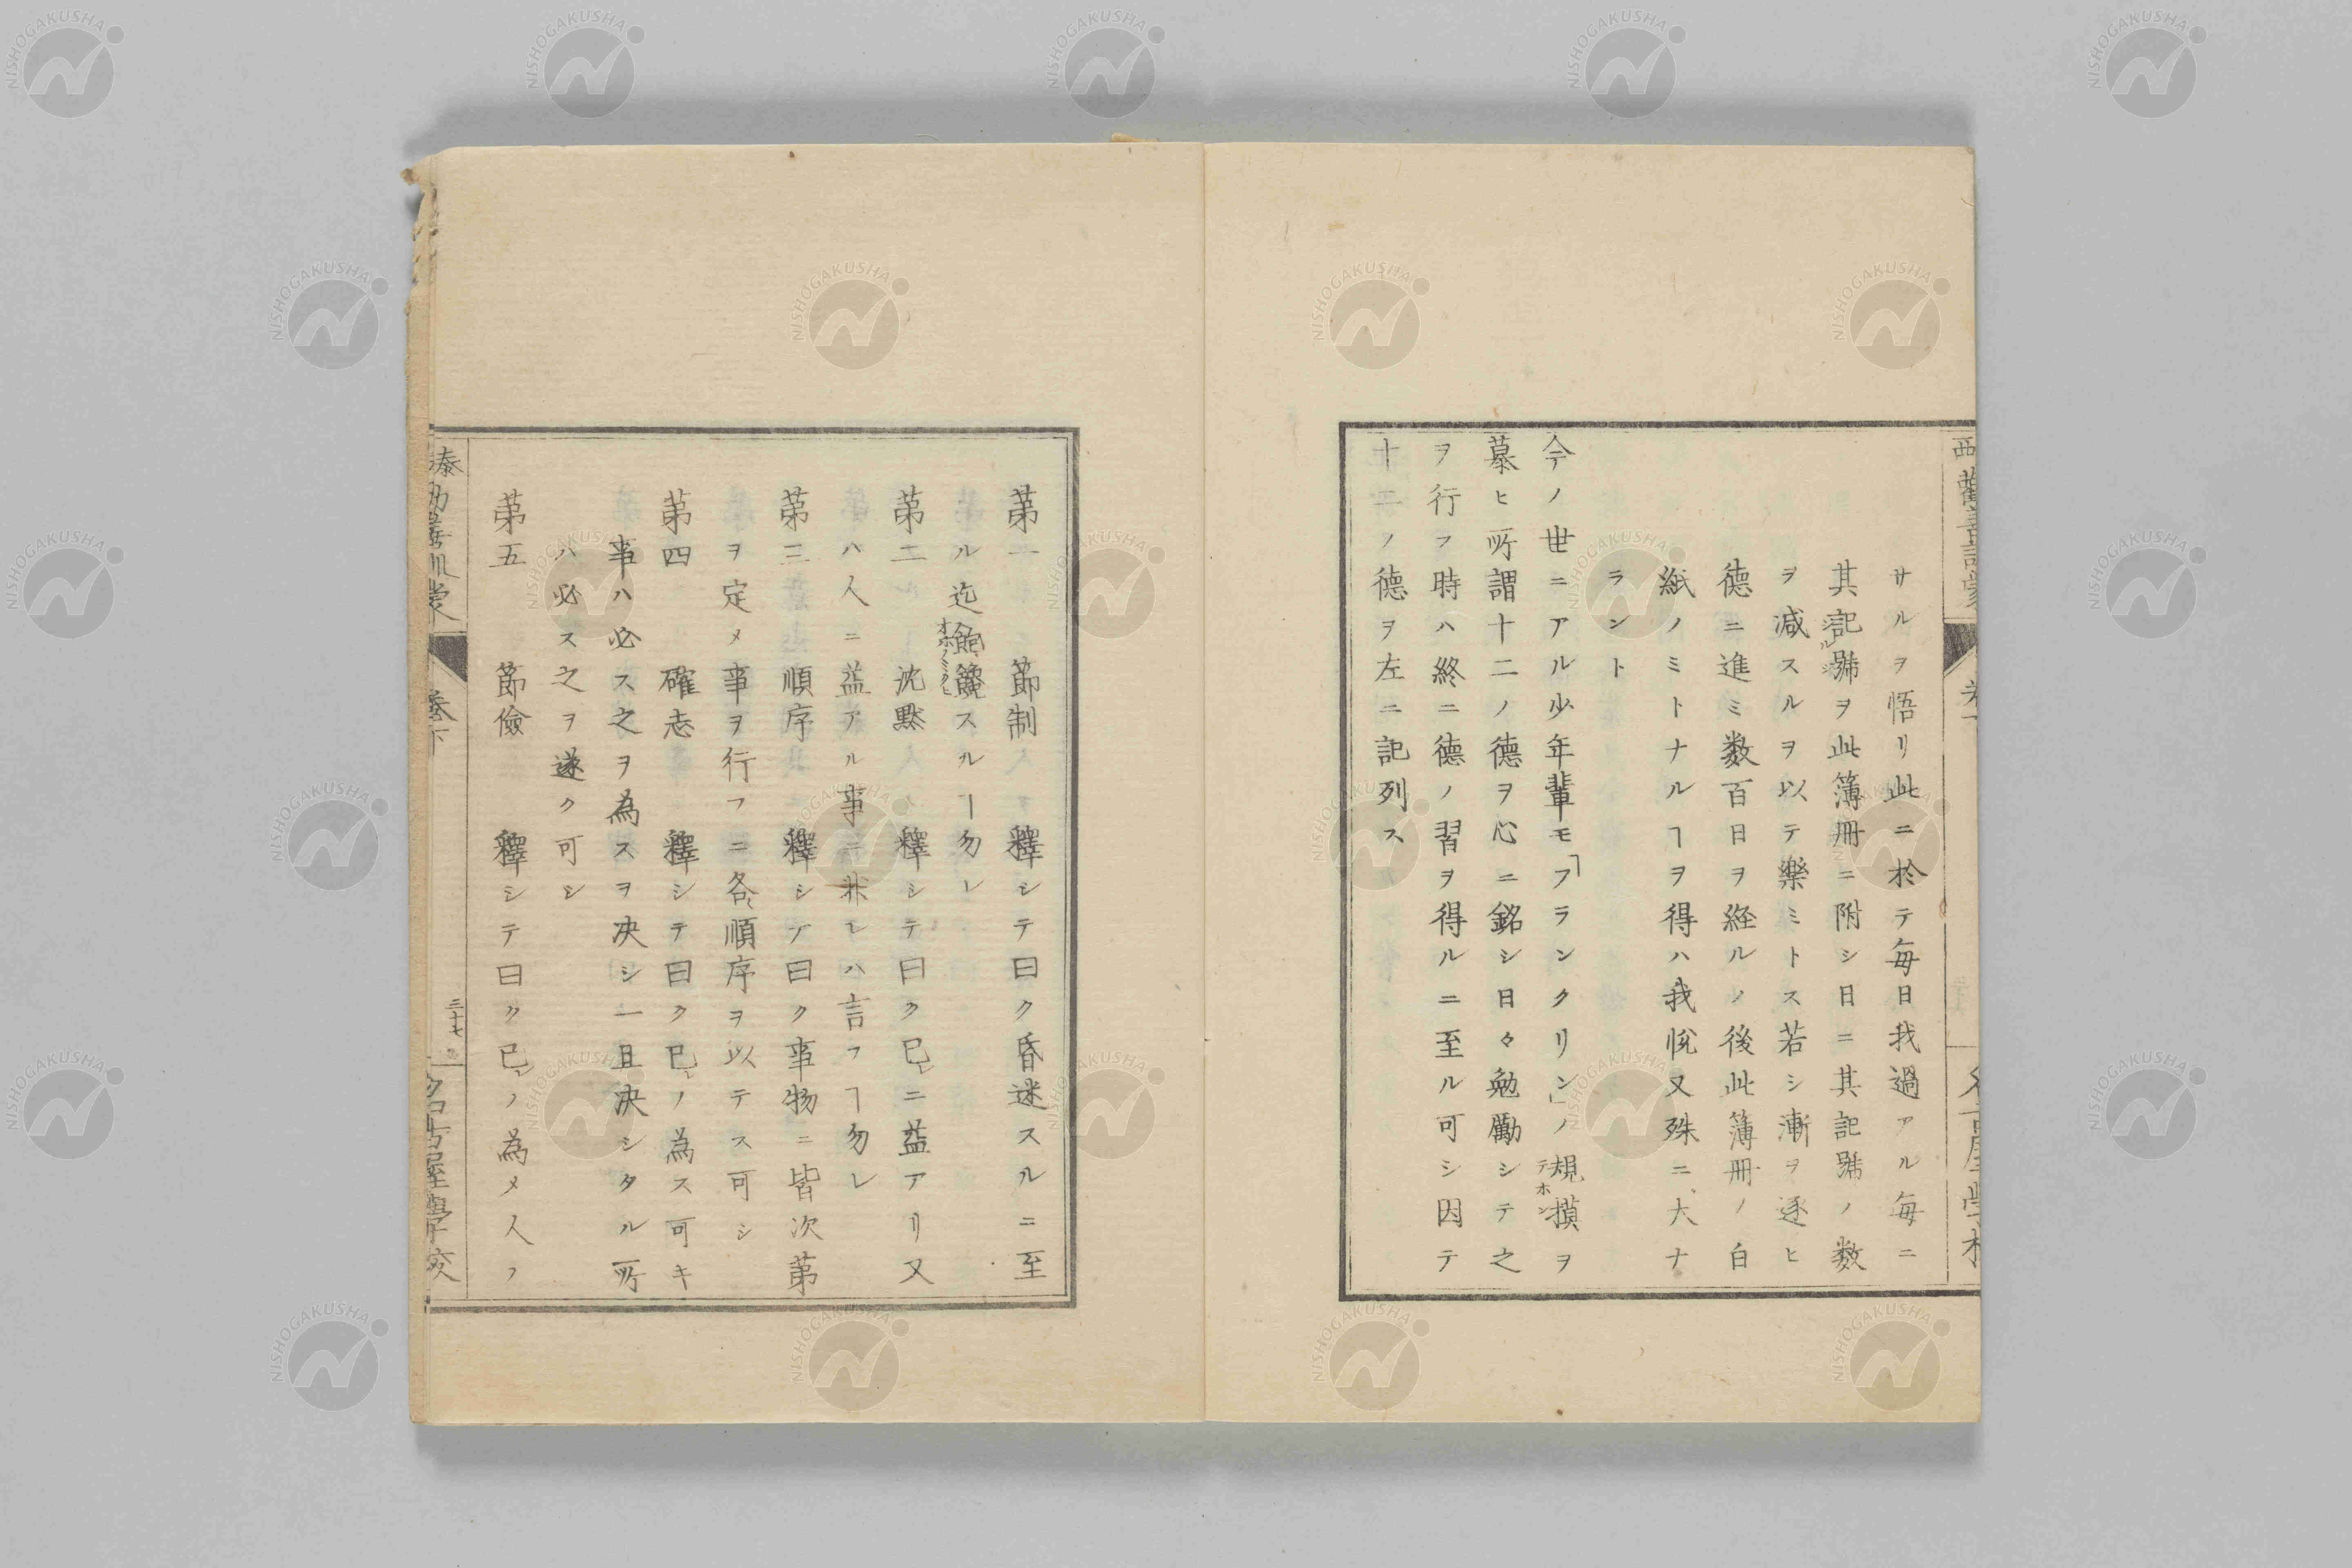 サルヲ悟リ此ニ於テ毎日我過アル毎ニ
其記號ヲ此簿冊ニ附シ日ニ其記號ノ数
ヲ減スルヲ以テ樂ミトス若シ漸ヲ逐ヒ
德ニ進ミ数百日ヲ経ルノ後此簿冊ノ白
紙ノミトナルヿヲ得ハ我悅又殊ニ大ナ
ラント
今ノ世ニアル少年輩モ「フランクリン」ノ規摸ヲ
テホン
慕ヒ所謂十二ノ德ヲ心ニ銘シ日々勉勵シテ之
ヲ行フ時ハ終ニ德ノ習ヲ得ルニ至ル可シ因テ
十二ノ德ヲ左ニ記列ス
第一 節制 釋シテ曰ク昏迷スルニ至
ル迄飽饞スルヿ勿レ
第二 沈黙 釋シテ曰ク已ニ益アリ又
ハ人ニ益アル事ニ非レハ言フヿ勿レ
第三 順序 釋シテ曰ク事物ニ皆次第
ヲ定メ事ヲ行フニ各順序ヲ以テス可シ
第四 確志 釋シテ曰ク已ノ為ス可キ
事ハ必ス之ヲ為スヲ决シ一旦决シタル所
ハ必ス之ヲ遂ク可シ
第五 節儉 釋シテ曰ク已ノ為メ人ノ
泰西勸善訓蒙 卷下 三十七 名古屋學校
NISHOGAKUSHA